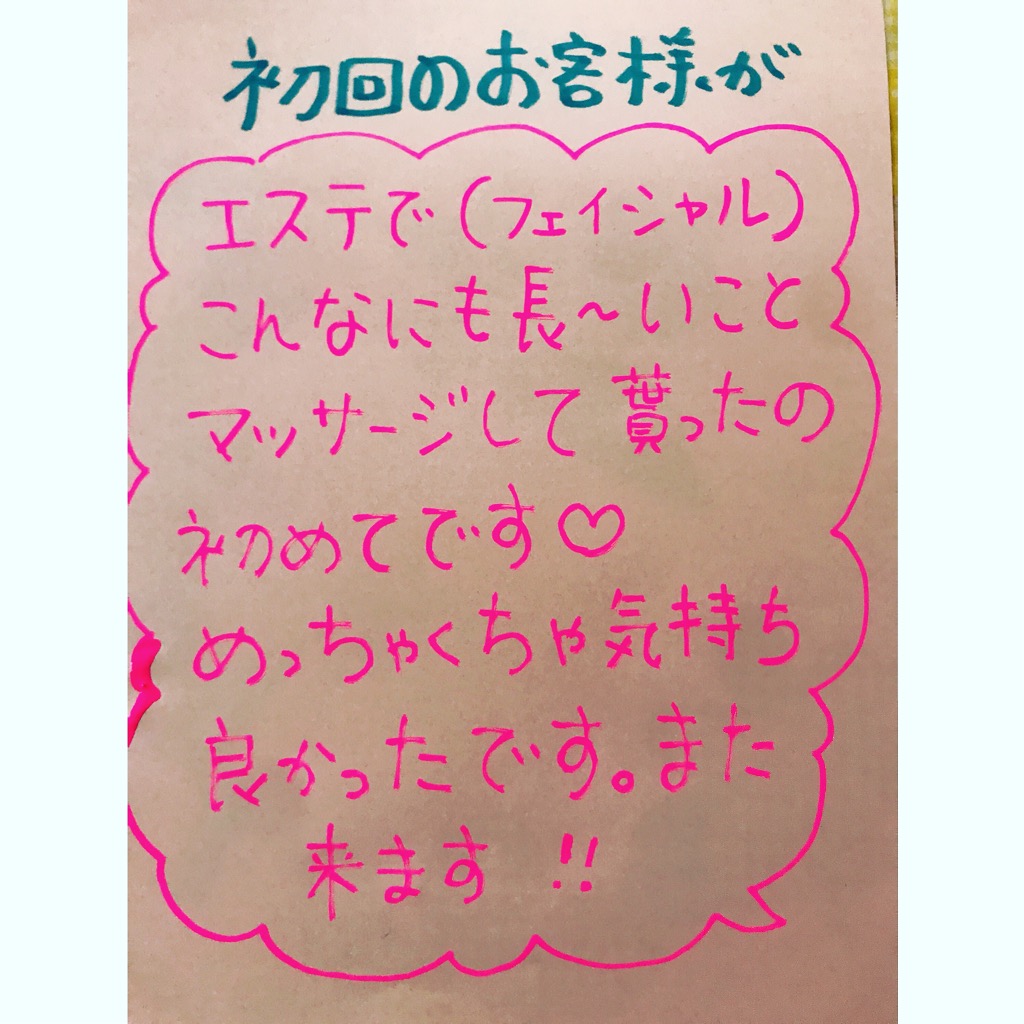 初回のお客様が
エステで(フェイシャル)
こんなにも長〜いこと
マッサージして貰ったの
初めてです♡
めっちゃくちゃ気持ち
良かったです。また
来ます!!